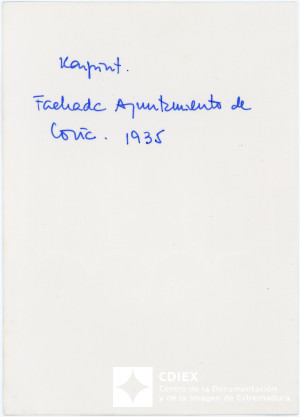 Karpint.
Fachada Ayuntamiento de
Coria. 1935
CDIEX
Centro de la Documentación
y de la Imagen de Extremadura